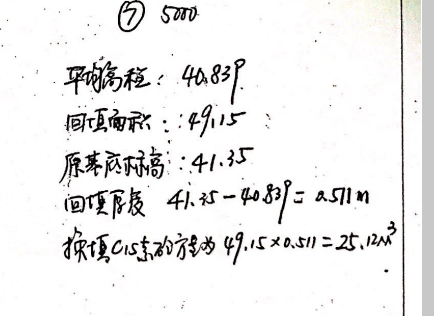 ⑦ 5000
平均高程：40.839
回填面积：49.15
原基底标高：41.35
回填厚度 41.35-40.839=0.511m
换填C15素砼方量为 49.15×0.511=25.12m³